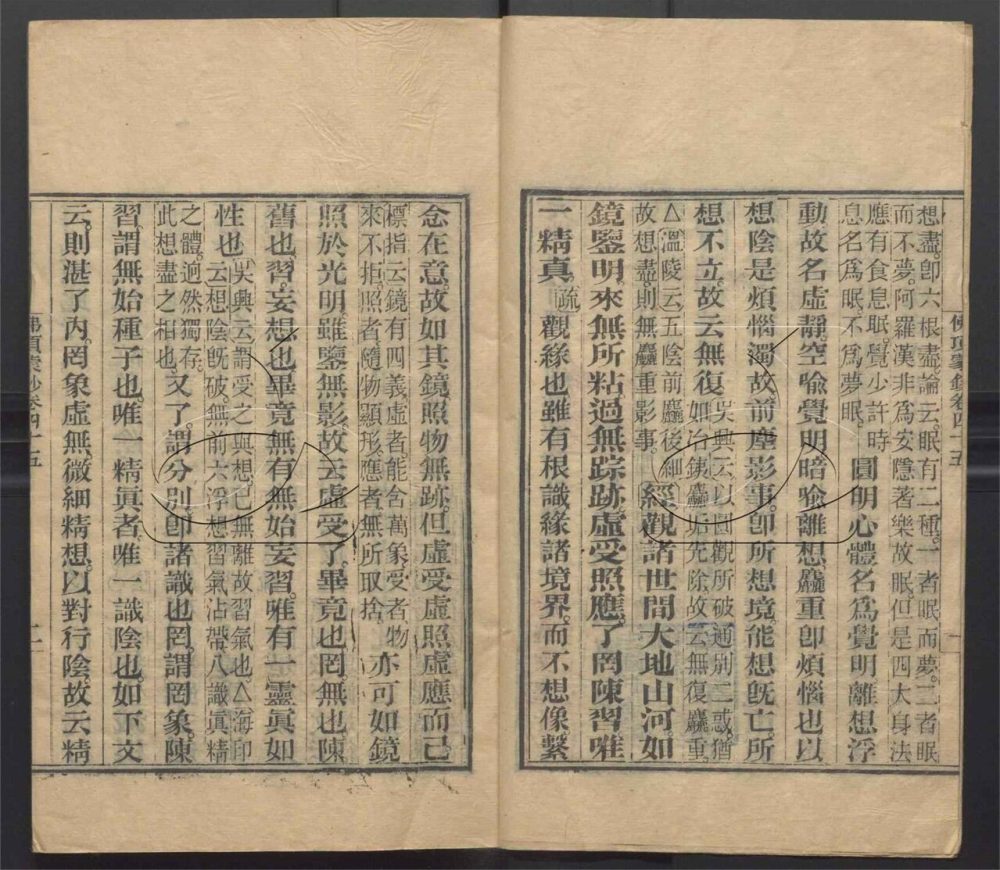 佛頂蒙鈔卷四十五
一
想盡卽六根盡論云眠有二種一者眠而夢二者眠
而不夢阿羅漢非爲安隱著樂故眠但是四大身法
應有食息眠覺少許時
息名爲眠不爲夢眠
圓明心體名爲覺明離想浮
動故名虛靜空喩覺明暗喩離想麤重卽煩惱也以
想陰是煩惱濁故前塵影事卽所想境能想旣亡所
想不立故云無復
吳興云以圓觀所破通別二惑猶
如冶鐵麤垢先除故云無復麤重
△溫陵云五陰前麤後細
故想盡則無麤重影事
經觀諸世間大地山河如
鏡鑒明來無所粘過無踪跡虛受照應了罔陳習唯
一精真
疏
觀緣也雖有根識緣諸境界而不想像繫
念在意故如其鏡照物無跡但虛受虛照虛應而已
標指云鏡有四義虛者能含萬象受者物
來不拒照者隨物顯形應者無所取捨
亦可如鏡
照於光明雖鑒無影故云虛受了畢竟也罔無也陳
舊也習妄想也畢竟無有無始妄習唯有一靈眞如
性也
吳興云謂受之與想已無離故習氣也△海印
云想陰旣破無前六浮想習氣沾帶八識眞精
之體逈然獨存
此想盡之相也
又了謂分別卽諸識也罔謂罔象陳
習謂無始種子也唯一精眞者唯一識陰也如下文
云則湛了內罔象虛無微細精想以對行陰故云精
佛頂蒙鈔卷四十五
二